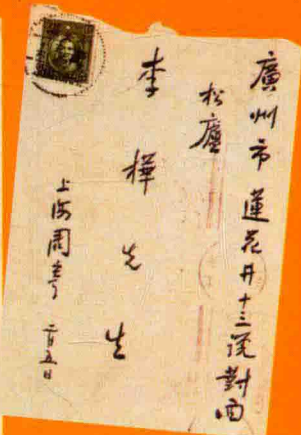 廣州市蓮花井十三號對面
松廬
李樺先生
上海周寄 一月五日